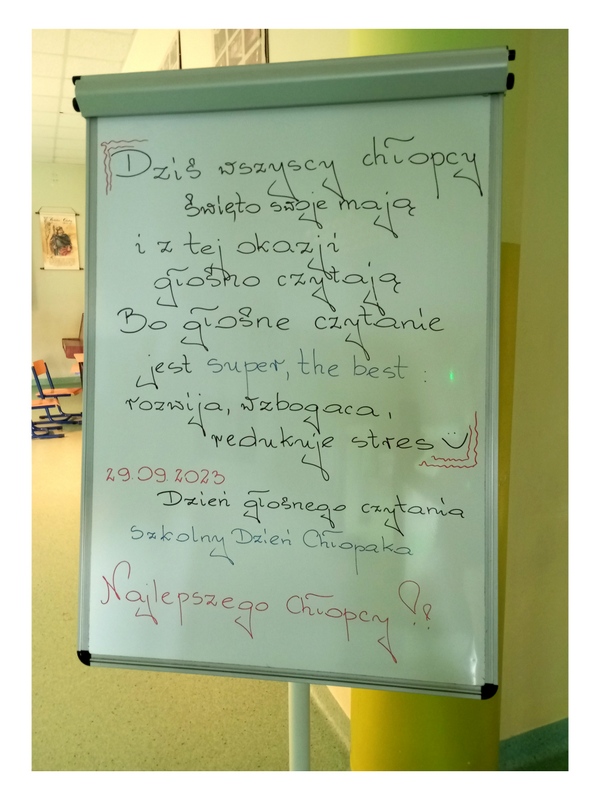 Dziś wszyscy chłopcy
święto swoje mają
i z tej okazji
głośno czytają
Bo głośne czytanie
jest super, the best :
rozwija, wzbogaca,
redukuje stres
29.09.2023
Dzień głośnego czytania
Szkolny Dzień Chłopaka
Najlepszego Chłopcy !!